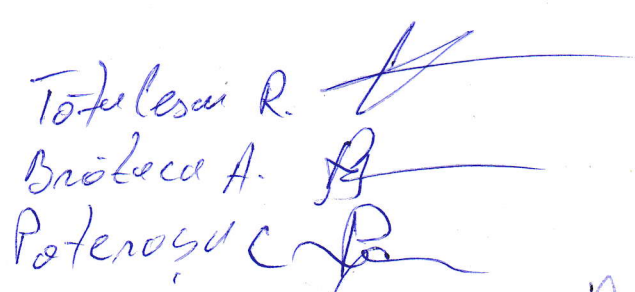 Tătulescu R.
Brătucu A.
Poteroșu C